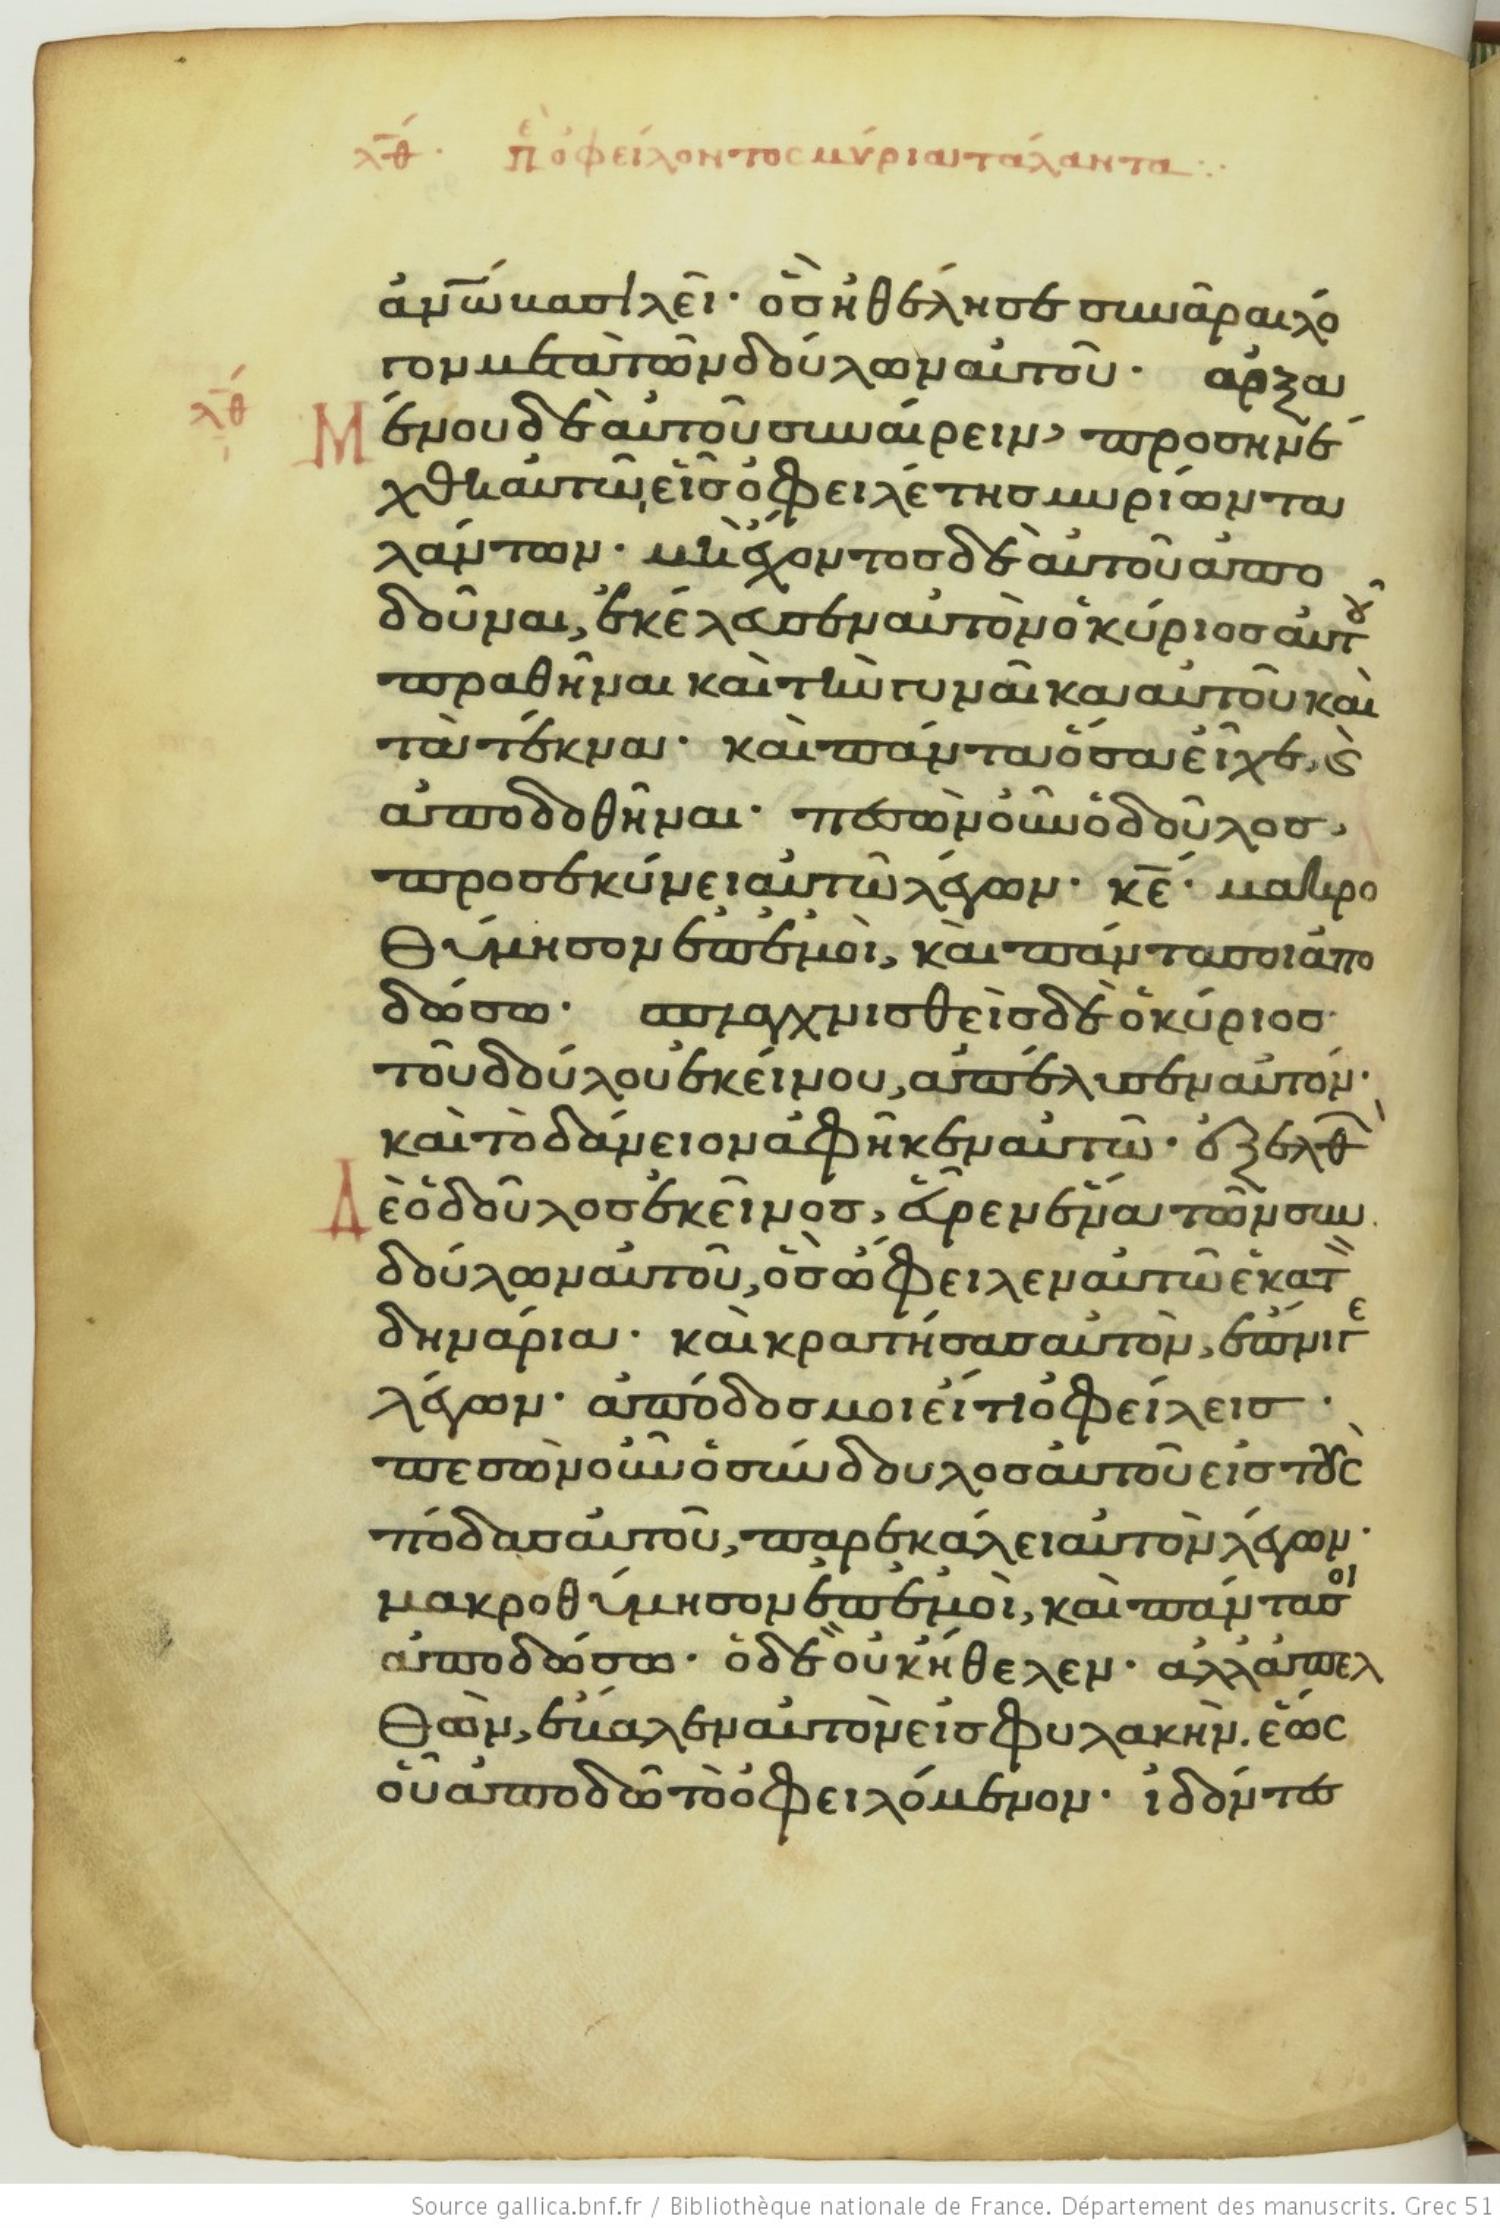 λθ· πε ὀφείλοντος μύρια τάλαντα
ἀν̅ω̅ βασιλεῖ· ὃς ἠθέλησε συνᾶραι λό
γον μετὰ τῶν δούλων αὐτοῦ· ἀρξα
λθ
μένου δὲ αὐτοῦ συναίρειν, προσηνέ
χθη αὐτῶ, εἷς ὀφειλέτης μυρίων τα
λάντων· μὴ ἔχοντος δὲ αὐτοῦ ἀπο
δοῦναι, ἐκέλευσεν αὐτὸν ὁ κύριος αὐτοῦ
πραθῆναι καὶ τὴν γυναῖκα αὐτοῦ καὶ
τὰ τέκνα· καὶ πάντα ὅσα εἶχε, ϗ
ἀποδοθῆναι· πεσὼν οὖν ὁ δοῦλος,
προσεκύνει αὐτῶ λέγων· κ̅ε̅· μακρο
θύμησον ἐπ' ἐμοὶ, καὶ πάντα σοι ἀπο
δώσω· σπλαγχνισθεὶς δὲ ὁ κύριος
τοῦ δούλου ἐκείνου, ἀπέλυσεν αὐτόν·
καὶ τὸ δάνειον ἀφῆκεν αὐτῶ· ἐξελθ
Δὲ ὁ δοῦλος ἐκεῖνος, εὗρεν ἕνα τῶν συν
δούλων αὐτοῦ, ὃς ὤφειλεν αὐτῶ ἑκατ
δηνάρια· καὶ κρατήσας αὐτὸν, ἔπνιγε
λέγων· ἀπόδος μοι εἴ τι ὀφείλεις·
πεσὼν οὖν ὁ σύνδουλος αὐτοῦ εἰς τοὺς
πόδας αὐτοῦ, παρεκάλει αὐτὸν λέγων·
μακροθύμησον ἐπ' ἐμοὶ, καὶ πάντα σοι
ἀποδώσω· ὁ δὲ οὐκ ἤθελεν· ἀλλ' ἀπελ
θὼν, ἔβαλεν αὐτὸν εἰς φυλακὴν. ἕως
οὗ ἀποδῶ τὸ ὀφειλόμενον· ἰδόντες
Source gallica.bnf.fr / Bibliothèque nationale de France. Département des manuscrits. Grec 51